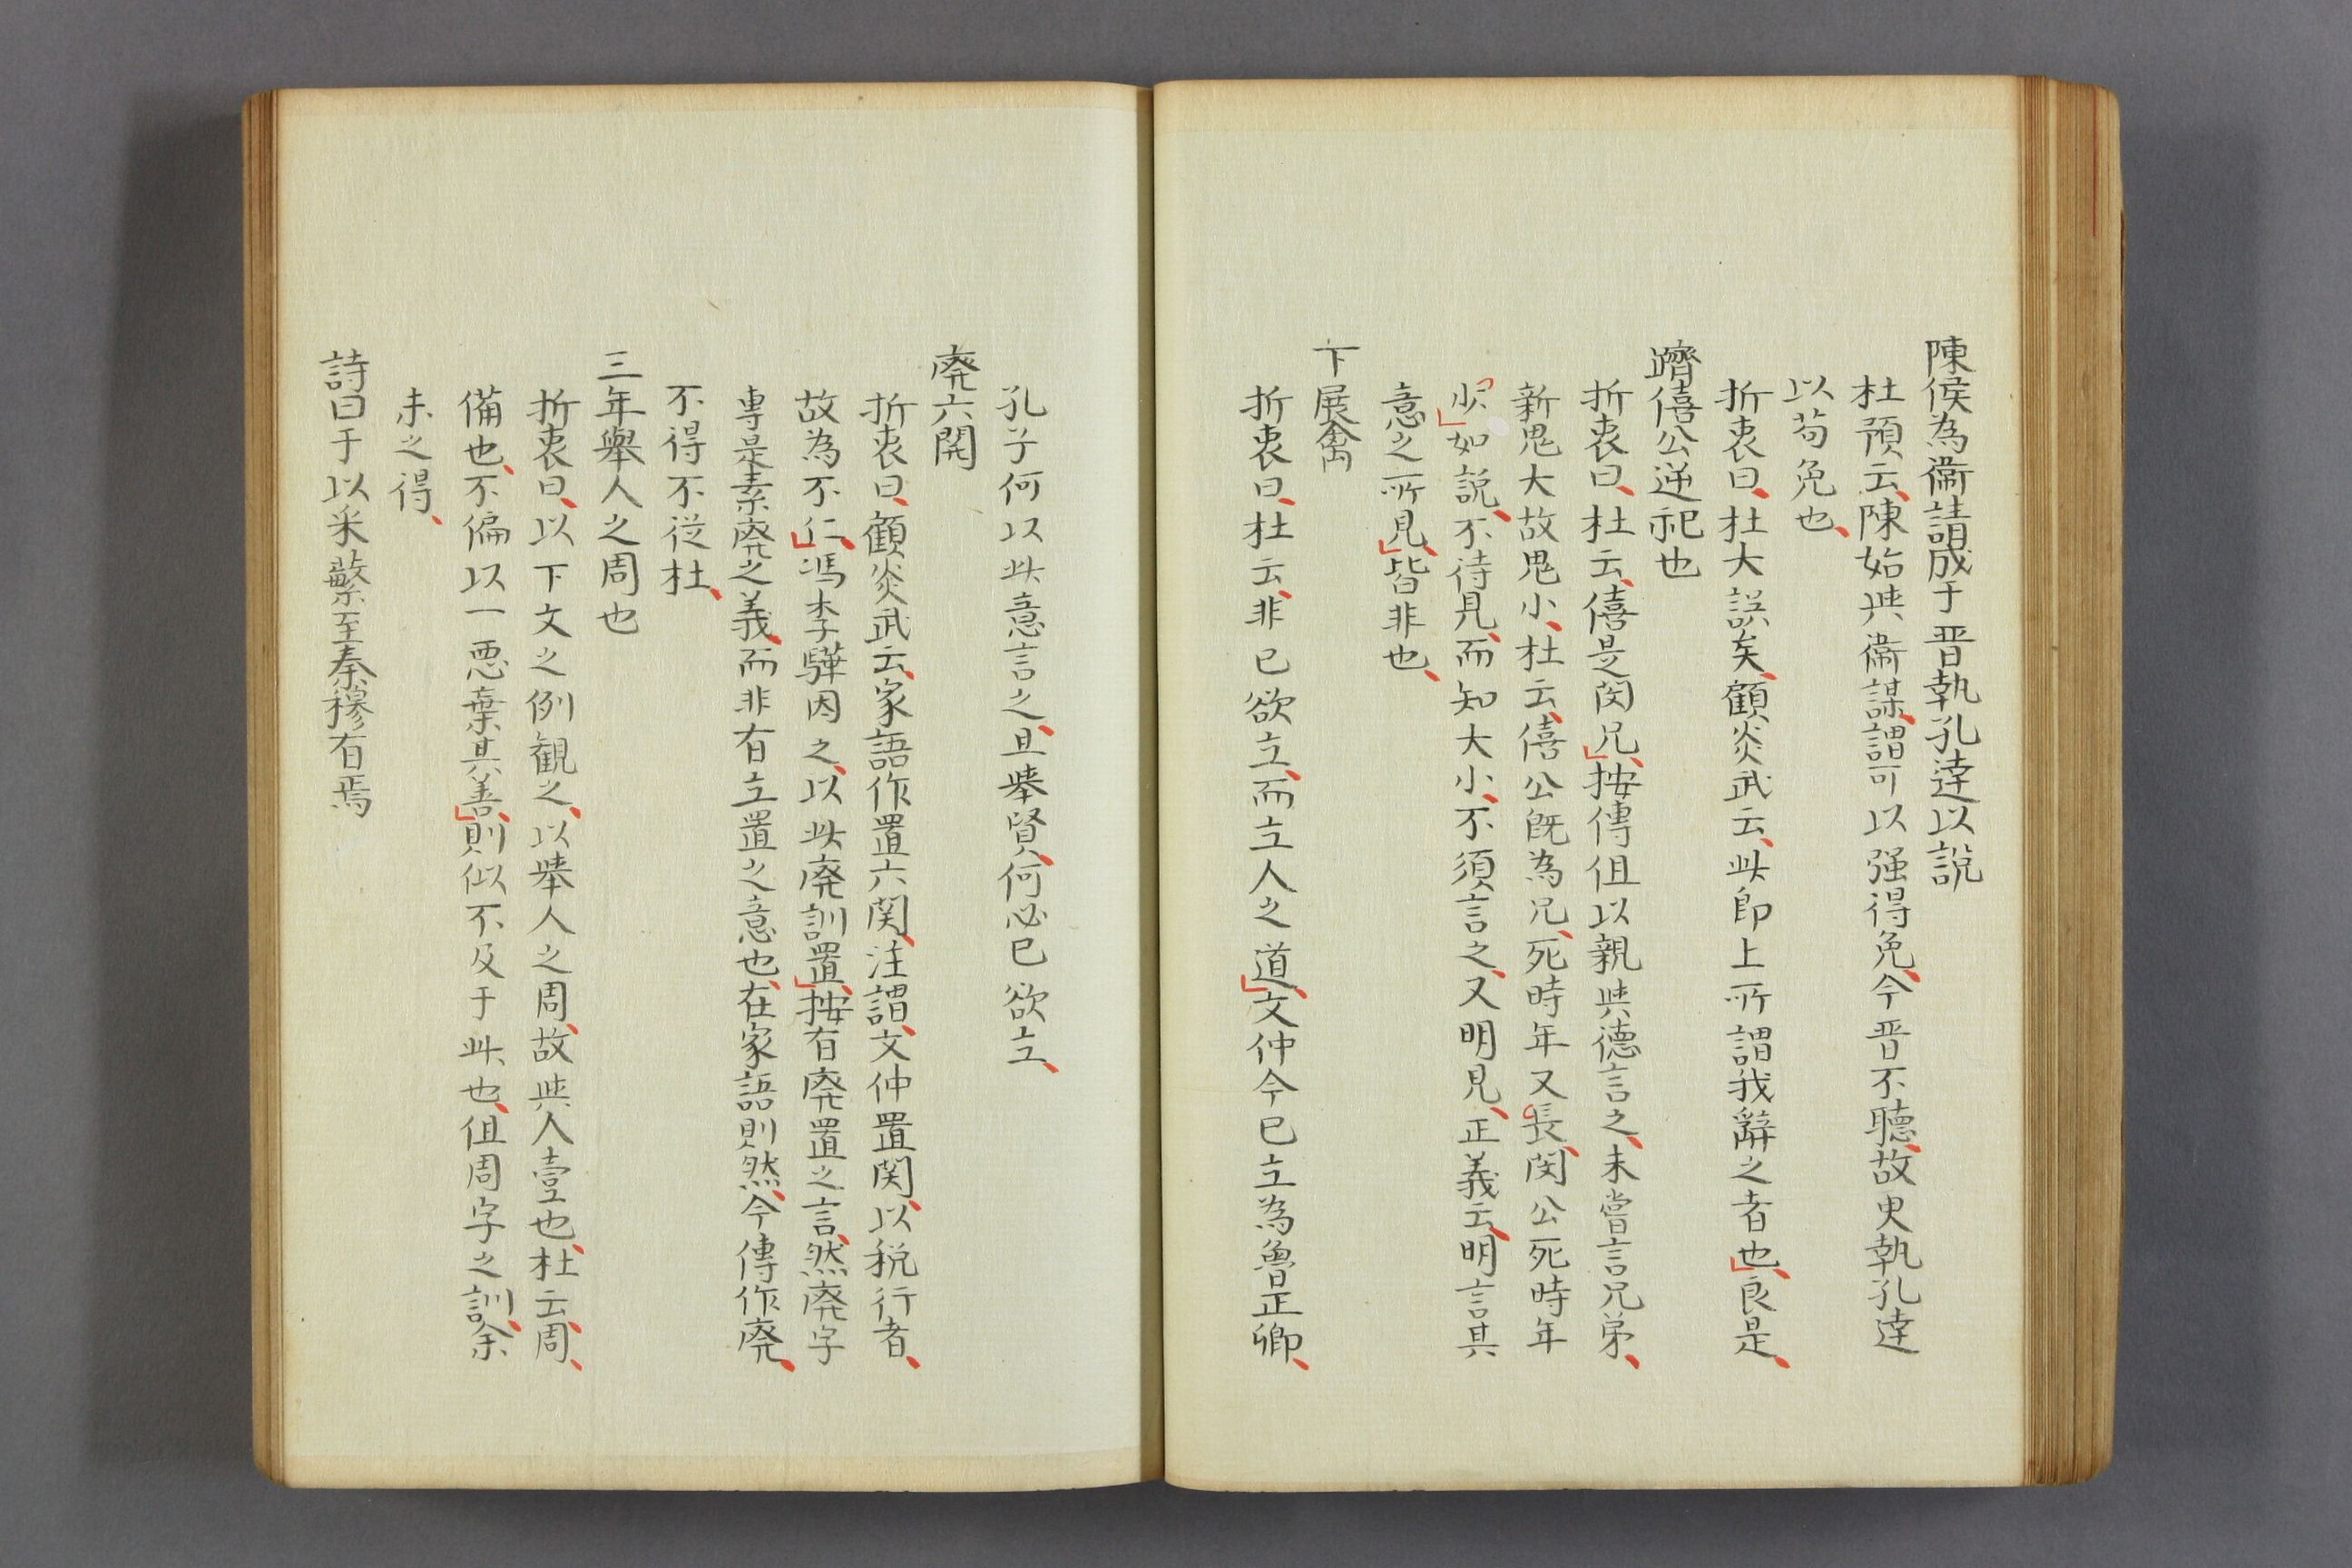 陳侯為衞請成于晋執孔達以説
杜預云、陳始與衞謀、謂可以强得免、今晋不聴、故更執孔達
以苟免也、
折衷曰、杜大誤矣、顧炎武云、此即上所謂我辭之者也、良是、
躋僖公逆祀也
折衷曰、杜云、僖是閔兄、按傳伹以親與德言之、未嘗言兄弟、
新鬼大故鬼小、杜云、僖公既為兄、死時年又長、閔公死時年
少、如説、不待見、而知大小、不須言之、又明見、正義云、明言其
意之所見、皆非也、
下展禽
折衷曰、杜云、非已欲立、而立人之道、文仲今已立為魯正卿、
孔子何以此意言之、且舉賢、何必已欲立、
廃六関
折衷曰、顧炎武云、家語作置六関、注謂、文仲置関、以税行者、
故為不仁、馮李驊因之、以此廃訓置、按有廃置之言、然廃字
專是素廃之義、而非有立置之意也、在家語則然、今傳作廃、
不得不從杜、
三年舉人之周也
折衷曰、以下文之例観之、以舉人之周、故與人壹也、杜云、周、
備也、不偏以一悪棄其善、則似不及于此也、伹周字之訓、余
未之得、
詩曰于以采蘩至秦穆有焉